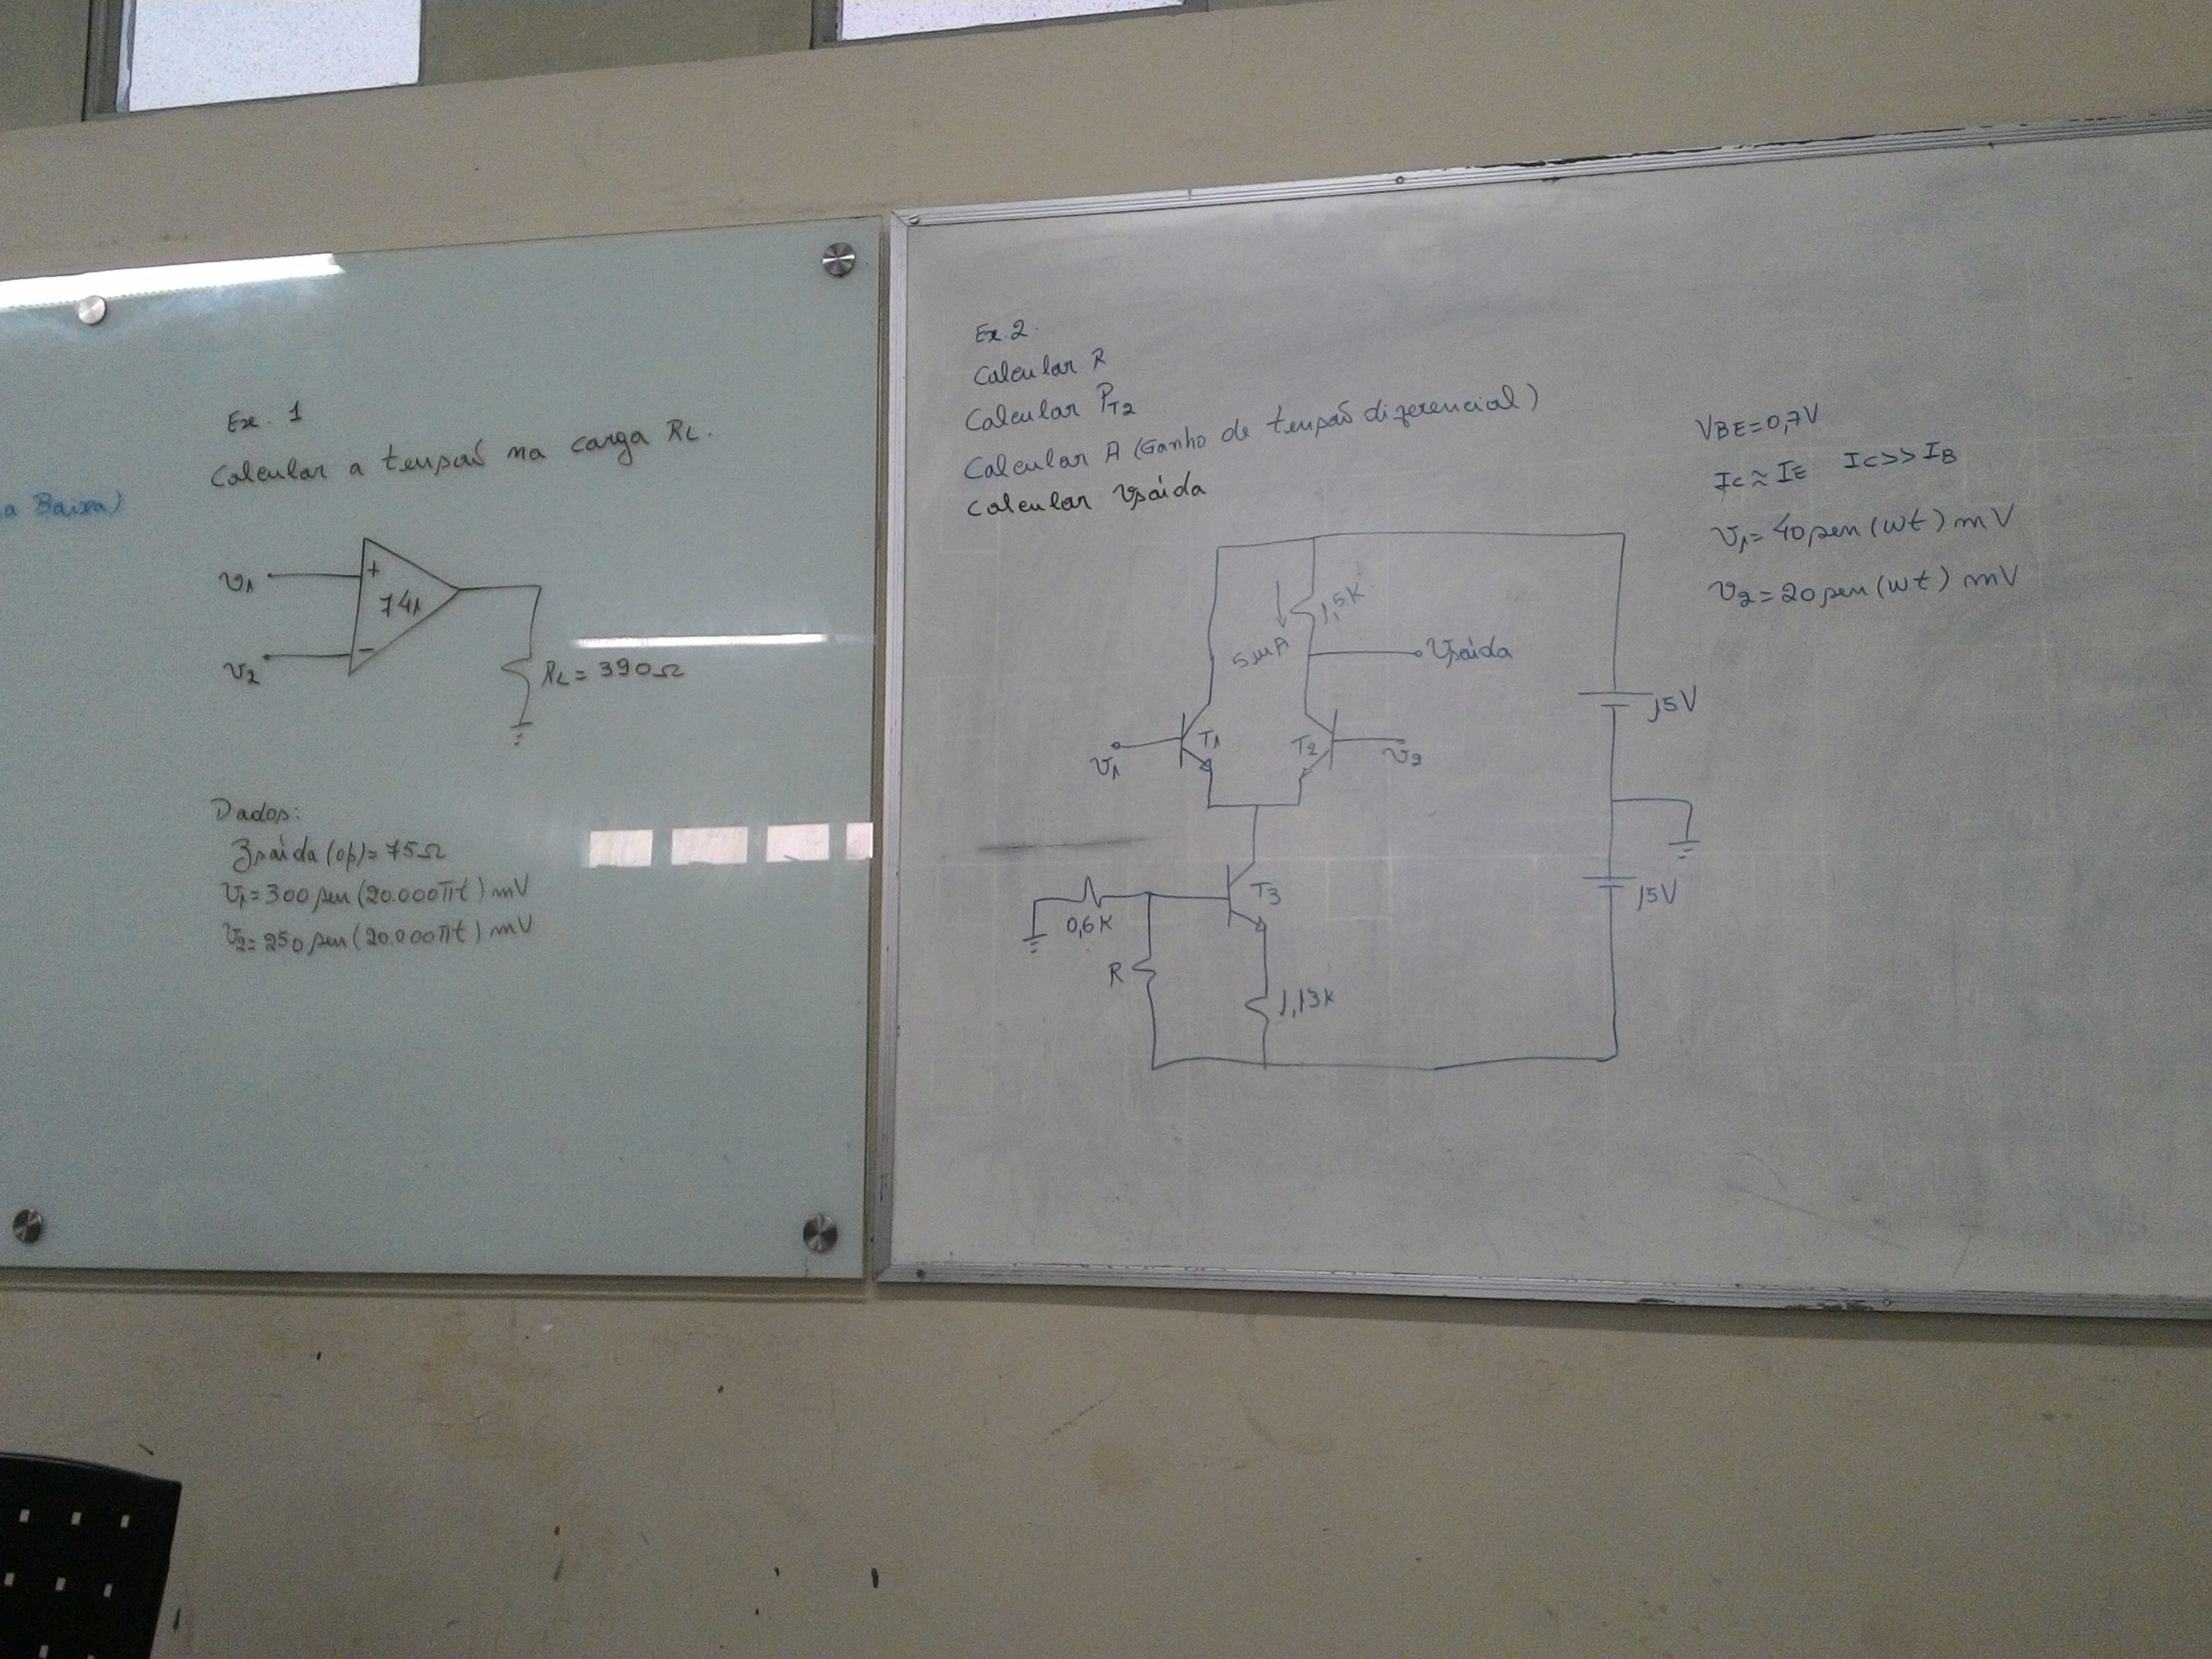 a Baixa)
Ex. 1
Calcular a tensão na carga RL.
v1
+
741
-
v2
RL = 390Ω
Dados:
Zsaída (op)= 75Ω
v1= 300 sen (20.000πt) mV
v2= 250 sen (20.000πt) mV
Ex. 2.
Calcular R
Calcular PT2
Calcular A (Ganho de tensão diferencial)
Calcular vsaída
VBE=0,7V
IC≈IE IC>>IB
v1= 40 sen (wt) mV
v2= 20 sen (wt) mV
1,5K
5mA
vsaída
15V
v1
T1
T2
v2
T3
0,6K
15V
R
1,13K